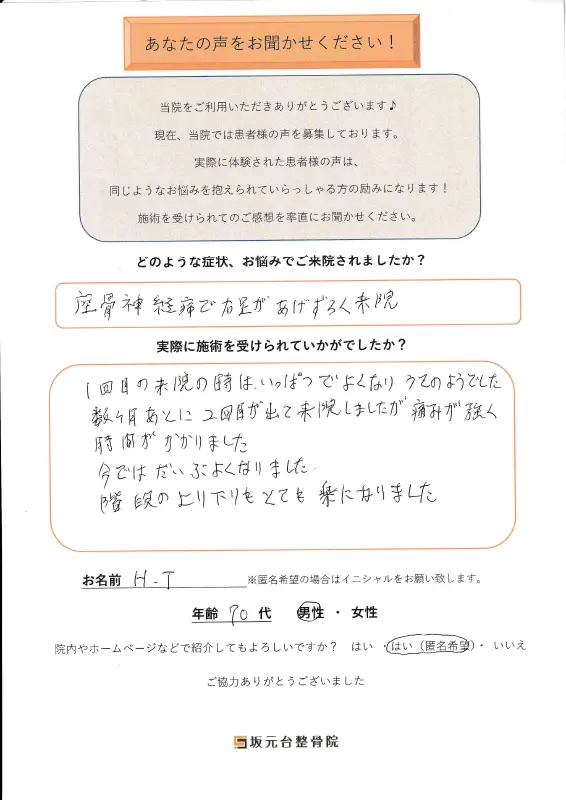 あなたの声をお聞かせください！
当院をご利用いただきありがとうございます♪
現在、当院では患者様の声を募集しております。
実際に体験された患者様の声は、
同じようなお悩みを抱えられていらっしゃる方の励みになります！
施術を受けられてのご感想を率直にお聞かせください。
どのような症状、お悩みでご来院されましたか？
座骨神経痛で右足があげずらく来院
実際に施術を受けられていかがでしたか？
1回目の来院の時は、いっぱつでよくなり うそのようでした
数ヶ月あとに2回目が出て来院しましたが 痛みが強く
時間がかかりました
今ではだいぶよくなりました.
階段の上り下りもとても楽になりました
お名前 H-T ※匿名希望の場合はイニシャルをお願い致します。
年齢 70 代 男性 ・ 女性
院内やホームページなどで紹介してもよろしいですか？ はい ・はい（匿名希望）・ いいえ
ご協力ありがとうございました
坂元台整骨院